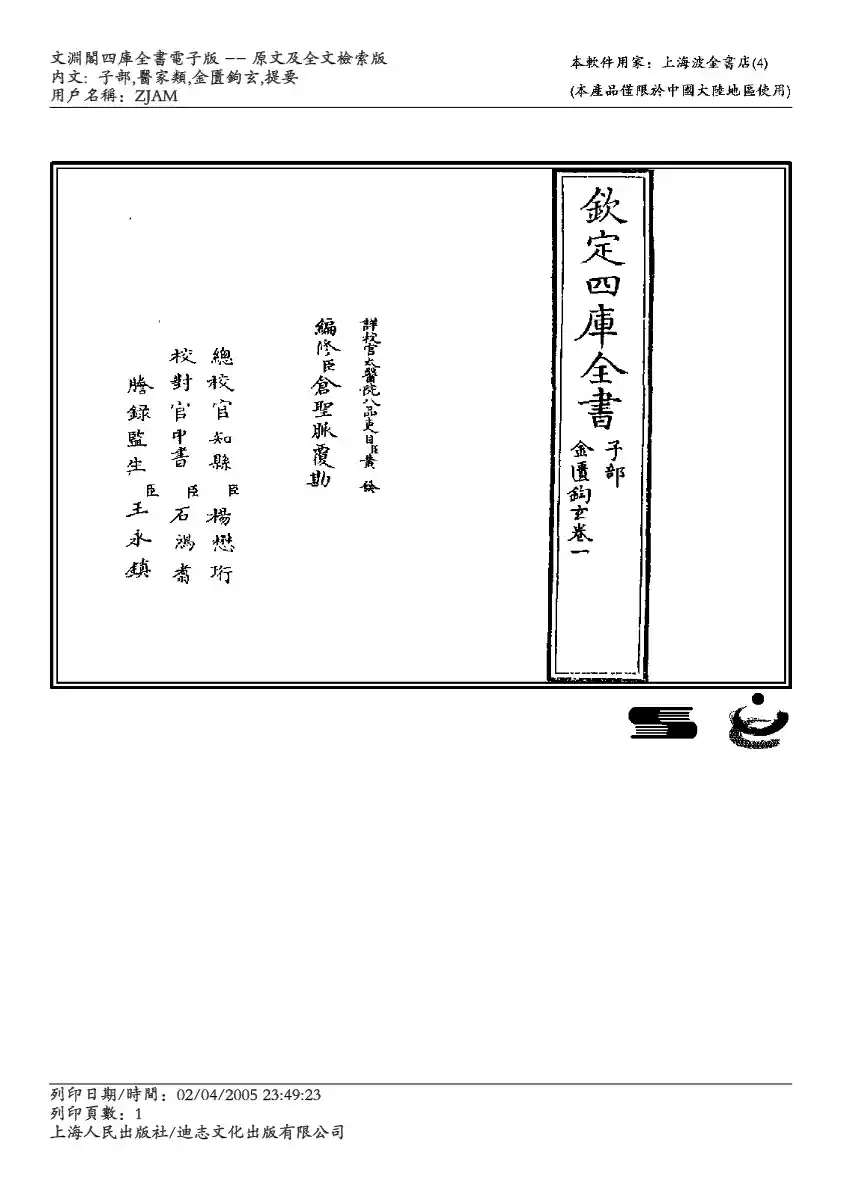 文淵閣四庫全書電子版 −− 原文及全文檢索版
內文: 子部,醫家類,金匱鉤玄,提要
用戶名稱：ZJAM
本軟件用家：上海波金書店(4)
(本產品僅限於中國大陸地區使用)
欽定四庫全書
子部
金匱鈎玄卷一
詳校官太醫院八品吏目臣黃
編修臣倉聖脈覆勘
總校官知縣臣楊懋珩
校對官中書臣石鴻翥
謄録監生臣王永鎮
列印日期/時間：02/04/2005 23:49:23
列印頁數：1
上海人民出版社/迪志文化出版有限公司